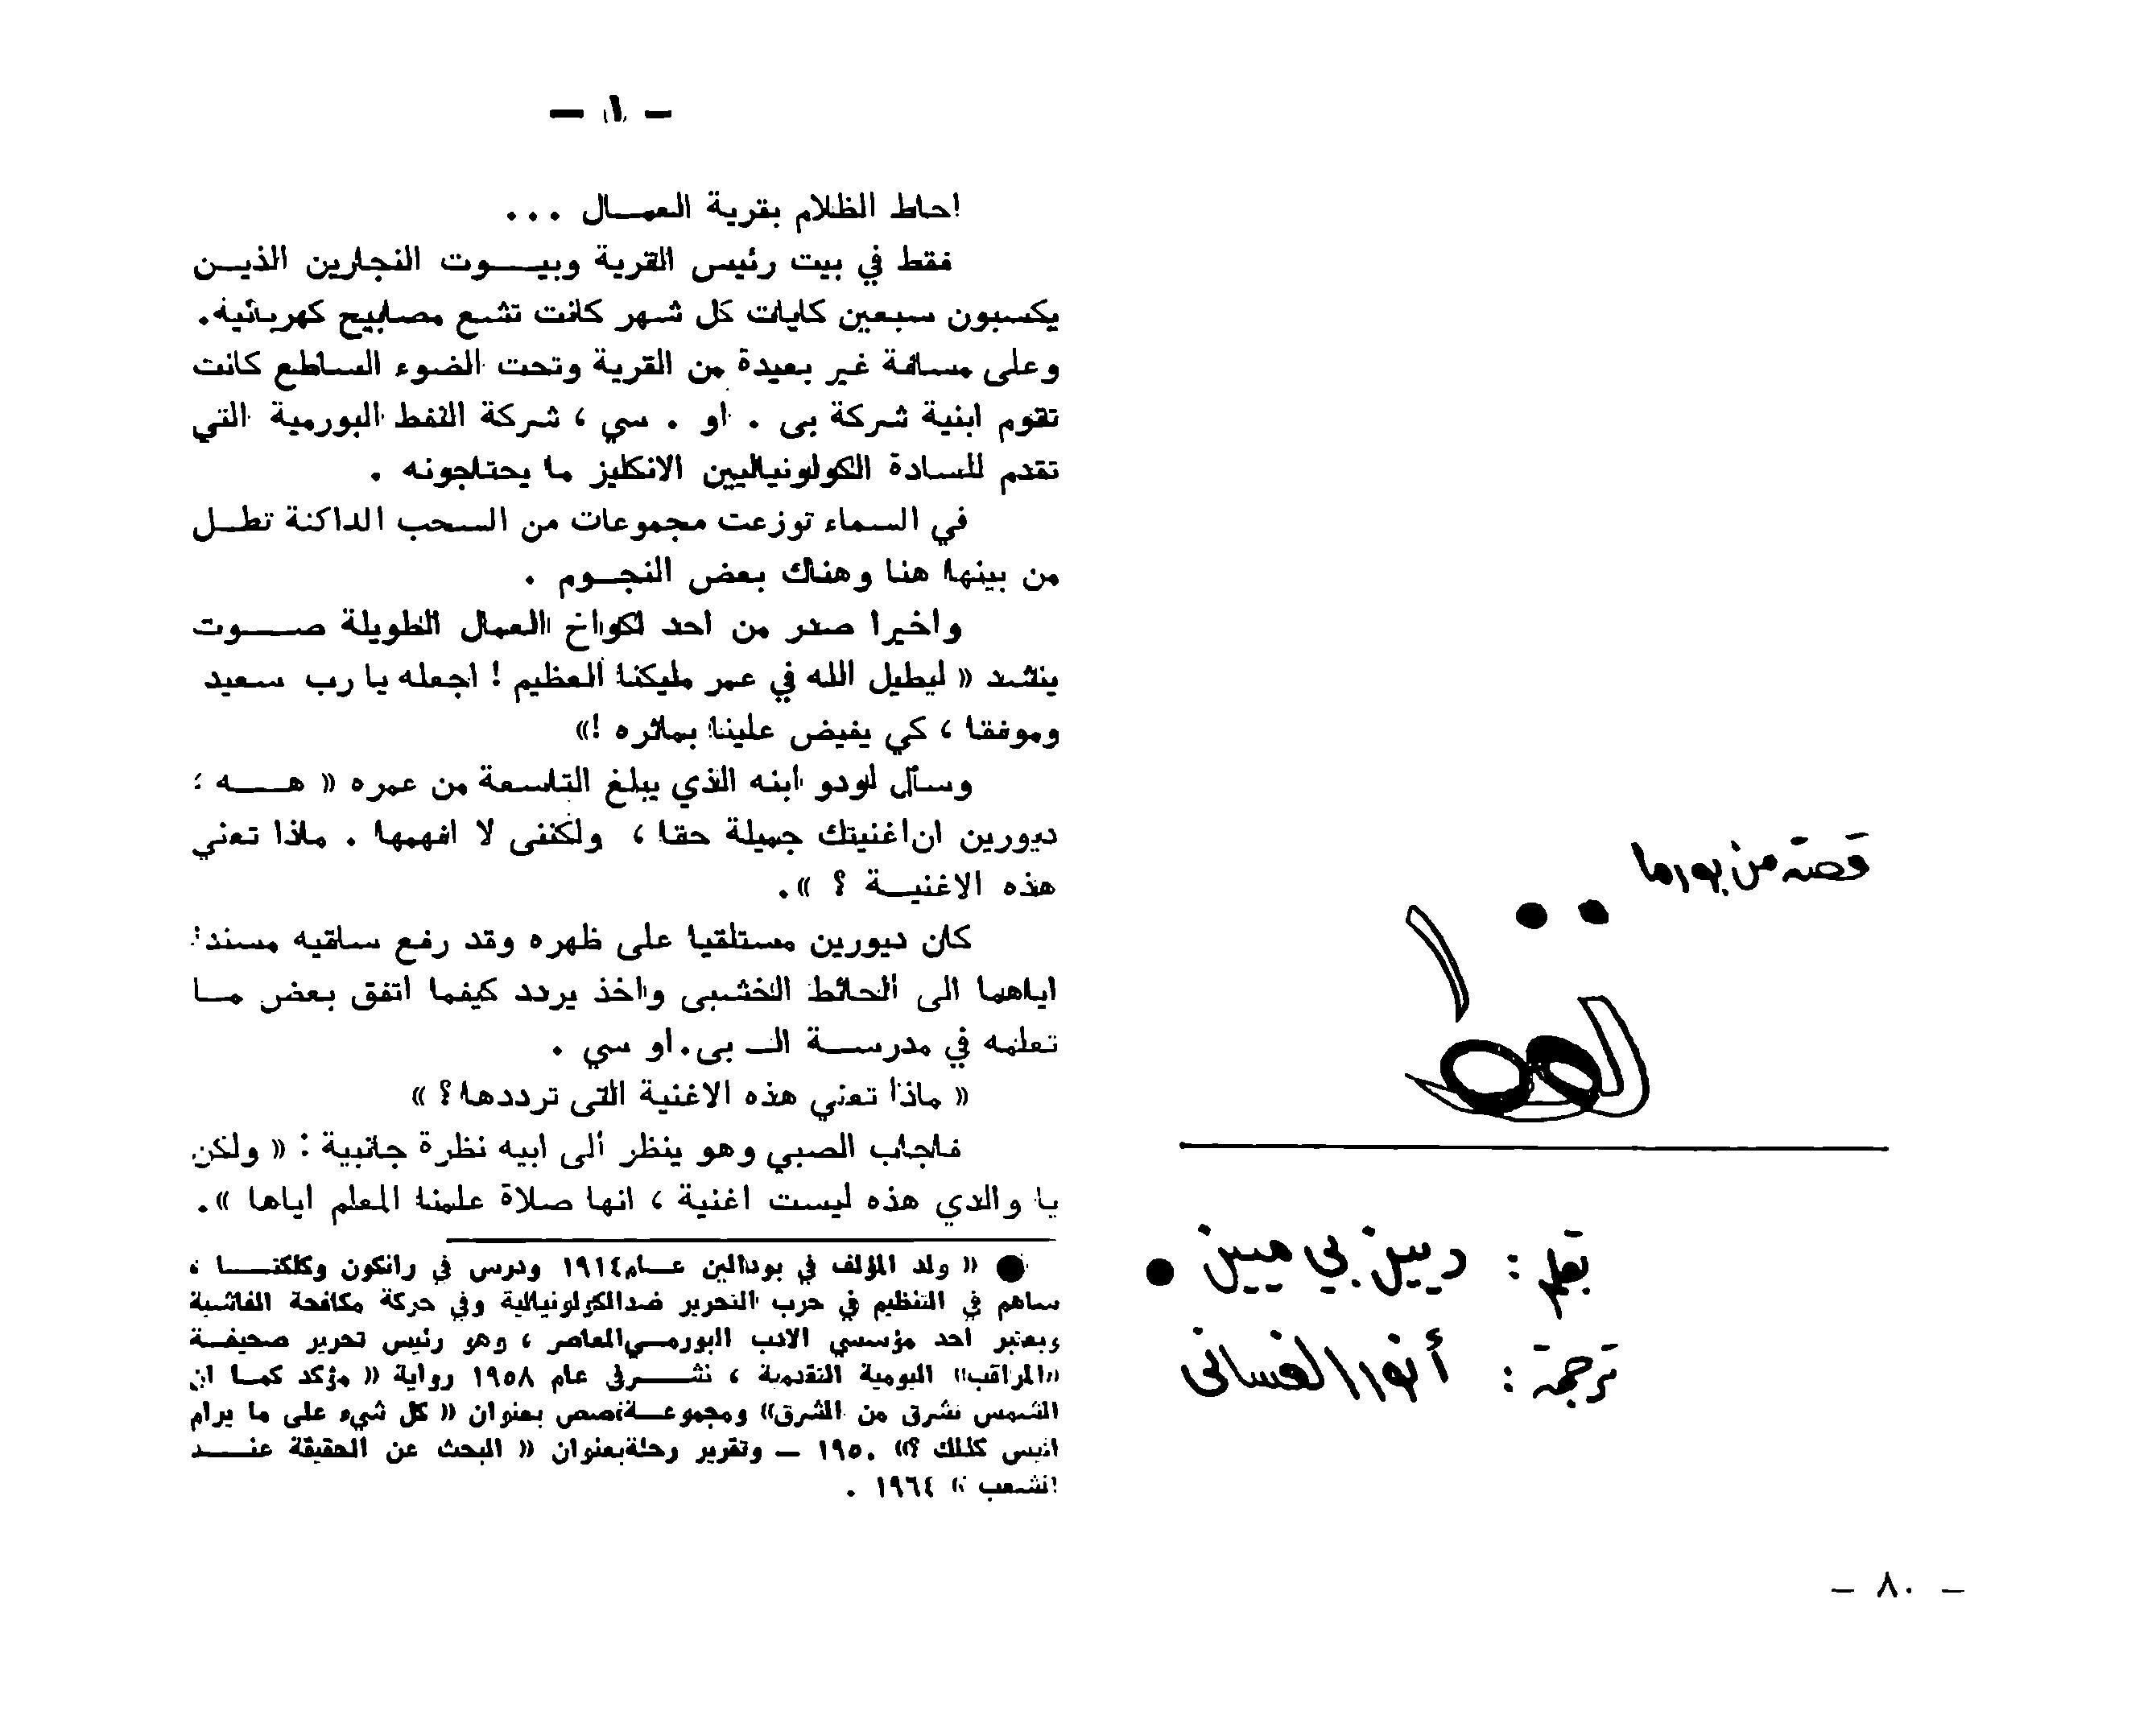 قصة من بورما
بقلم : ديبين بي ميين ●
ترجمة : أنور الغساني
– ٨٠ –
– ١ –
احاط الظلام بقرية العمـــال ...
فقط في بيت رئيس القرية وبيـــوت النجارين الذيـــن
يكسبون سبعين كايات كل شهر كانت تشع مصابيح كهربائية.
وعلى مسافة غير بعيدة من القرية وتحت الضوء الساطع كانت
تقوم ابنية شركة بى . او . سي ، شركة النفط البورمية التي
تقدم للسادة الكولونياليين الانكليز ما يحتاجونه .
في السماء توزعت مجموعات من السحب الداكنة تطـــل
من بينها هنا وهناك بعض النجـــوم .
واخيرا صدر من احد اكواخ العمال الطويلة صـــوت
ينشد « ليطيل الله في عمر مليكنا العظيم ! اجعله يا رب سعيد
وموفقا ، كي يفيض علينا بماثره !»
وسأل لودو ابنه الذي يبلغ التاسعة من عمره « هـــه ؛
ديورين ان اغنيتك جميلة حقا ، ولكننى لا افهمها . ماذا تعني
هذه الاغنيـــة ؟ ».
كان ديورين مستلقيا على ظهره وقد رفع ساقيه مسندا
اياهما الى الحائط الخشبى واخذ يردد كيفما اتفق بعض مـــا
تعلمه في مدرســـة الـــ بى.او سي .
« ماذا تعني هذه الاغنية التى ترددها؟ »
فاجاب الصبي وهو ينظر ألى ابيه نظرة جانبية : « ولكن
يا والدي هذه ليست اغنية ، انها صلاة علمنا المعلم اياها ».
● « ولد المؤلف في بودالين عـــام١٩١٤ ودرس في رانكون وكلكتـــا ،
ساهم في التنظيم في حرب التحرير ضدالكولونيالية وفي حركة مكافحة الفاشية
ويعتبر احد مؤسسي الادب البورمـــي المعاصر ، وهو رئيس تحرير صحيفـــة
«المراقب» اليومية التقدمية ، نشـــرفى عام ١٩٥٨ رواية « مؤكد كمـــا ان
الشمس تشرق من الشرق» ومجموعـــةقصص بعنوان « كل شيء على ما يرام
اليس كذلك ؟» ١٩٥٠ – وتقرير رحلةبعنوان « البحث عن الحقيقة عنـــد
الشعب » ١٩٦٤ .